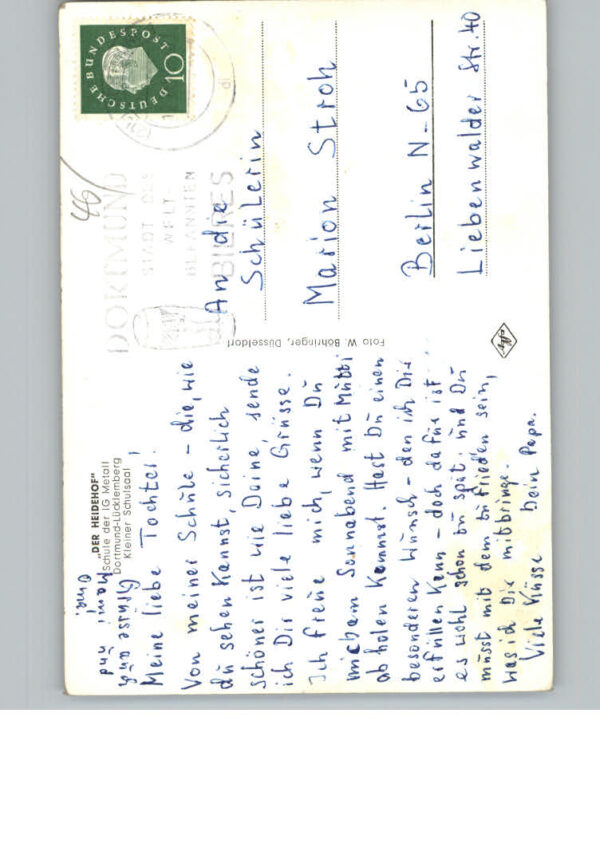 "DER HEIDEHOF"
Schule der IG Metall
Dortmund-Lücklemberg
Kleiner Schulsaal
Grüsse auch
Mami und
Omi!
Meine liebe Tochter!
Von meiner Schule – die, wie
du sehen kannst, sicherlich
schöner ist wie Deine, sende
ich Dir viele liebe Grüsse.
Ich freue mich, wenn Du
mich am Sonnabend mit Mutti
abholen kommst. Hast Du einen
besonderen Wunsch – den ich Dir
erfüllen kann – doch dafür ist
es wohl schon zu spät, und Du
müsst mit dem zufrieden sein,
was ich Dir mitbringe.
Viele Küsse Dein Papa.
Foto W. Böhringer, Düsseldorf
Agfa
DEUTSCHE BUNDESPOST
10
46/
DORTMUND
STADT DES
WELT-
BEKANNTEN
BIERES
An die
Schülerin
Marion Stroh
Berlin N-65
Liebenwalder Str. 40